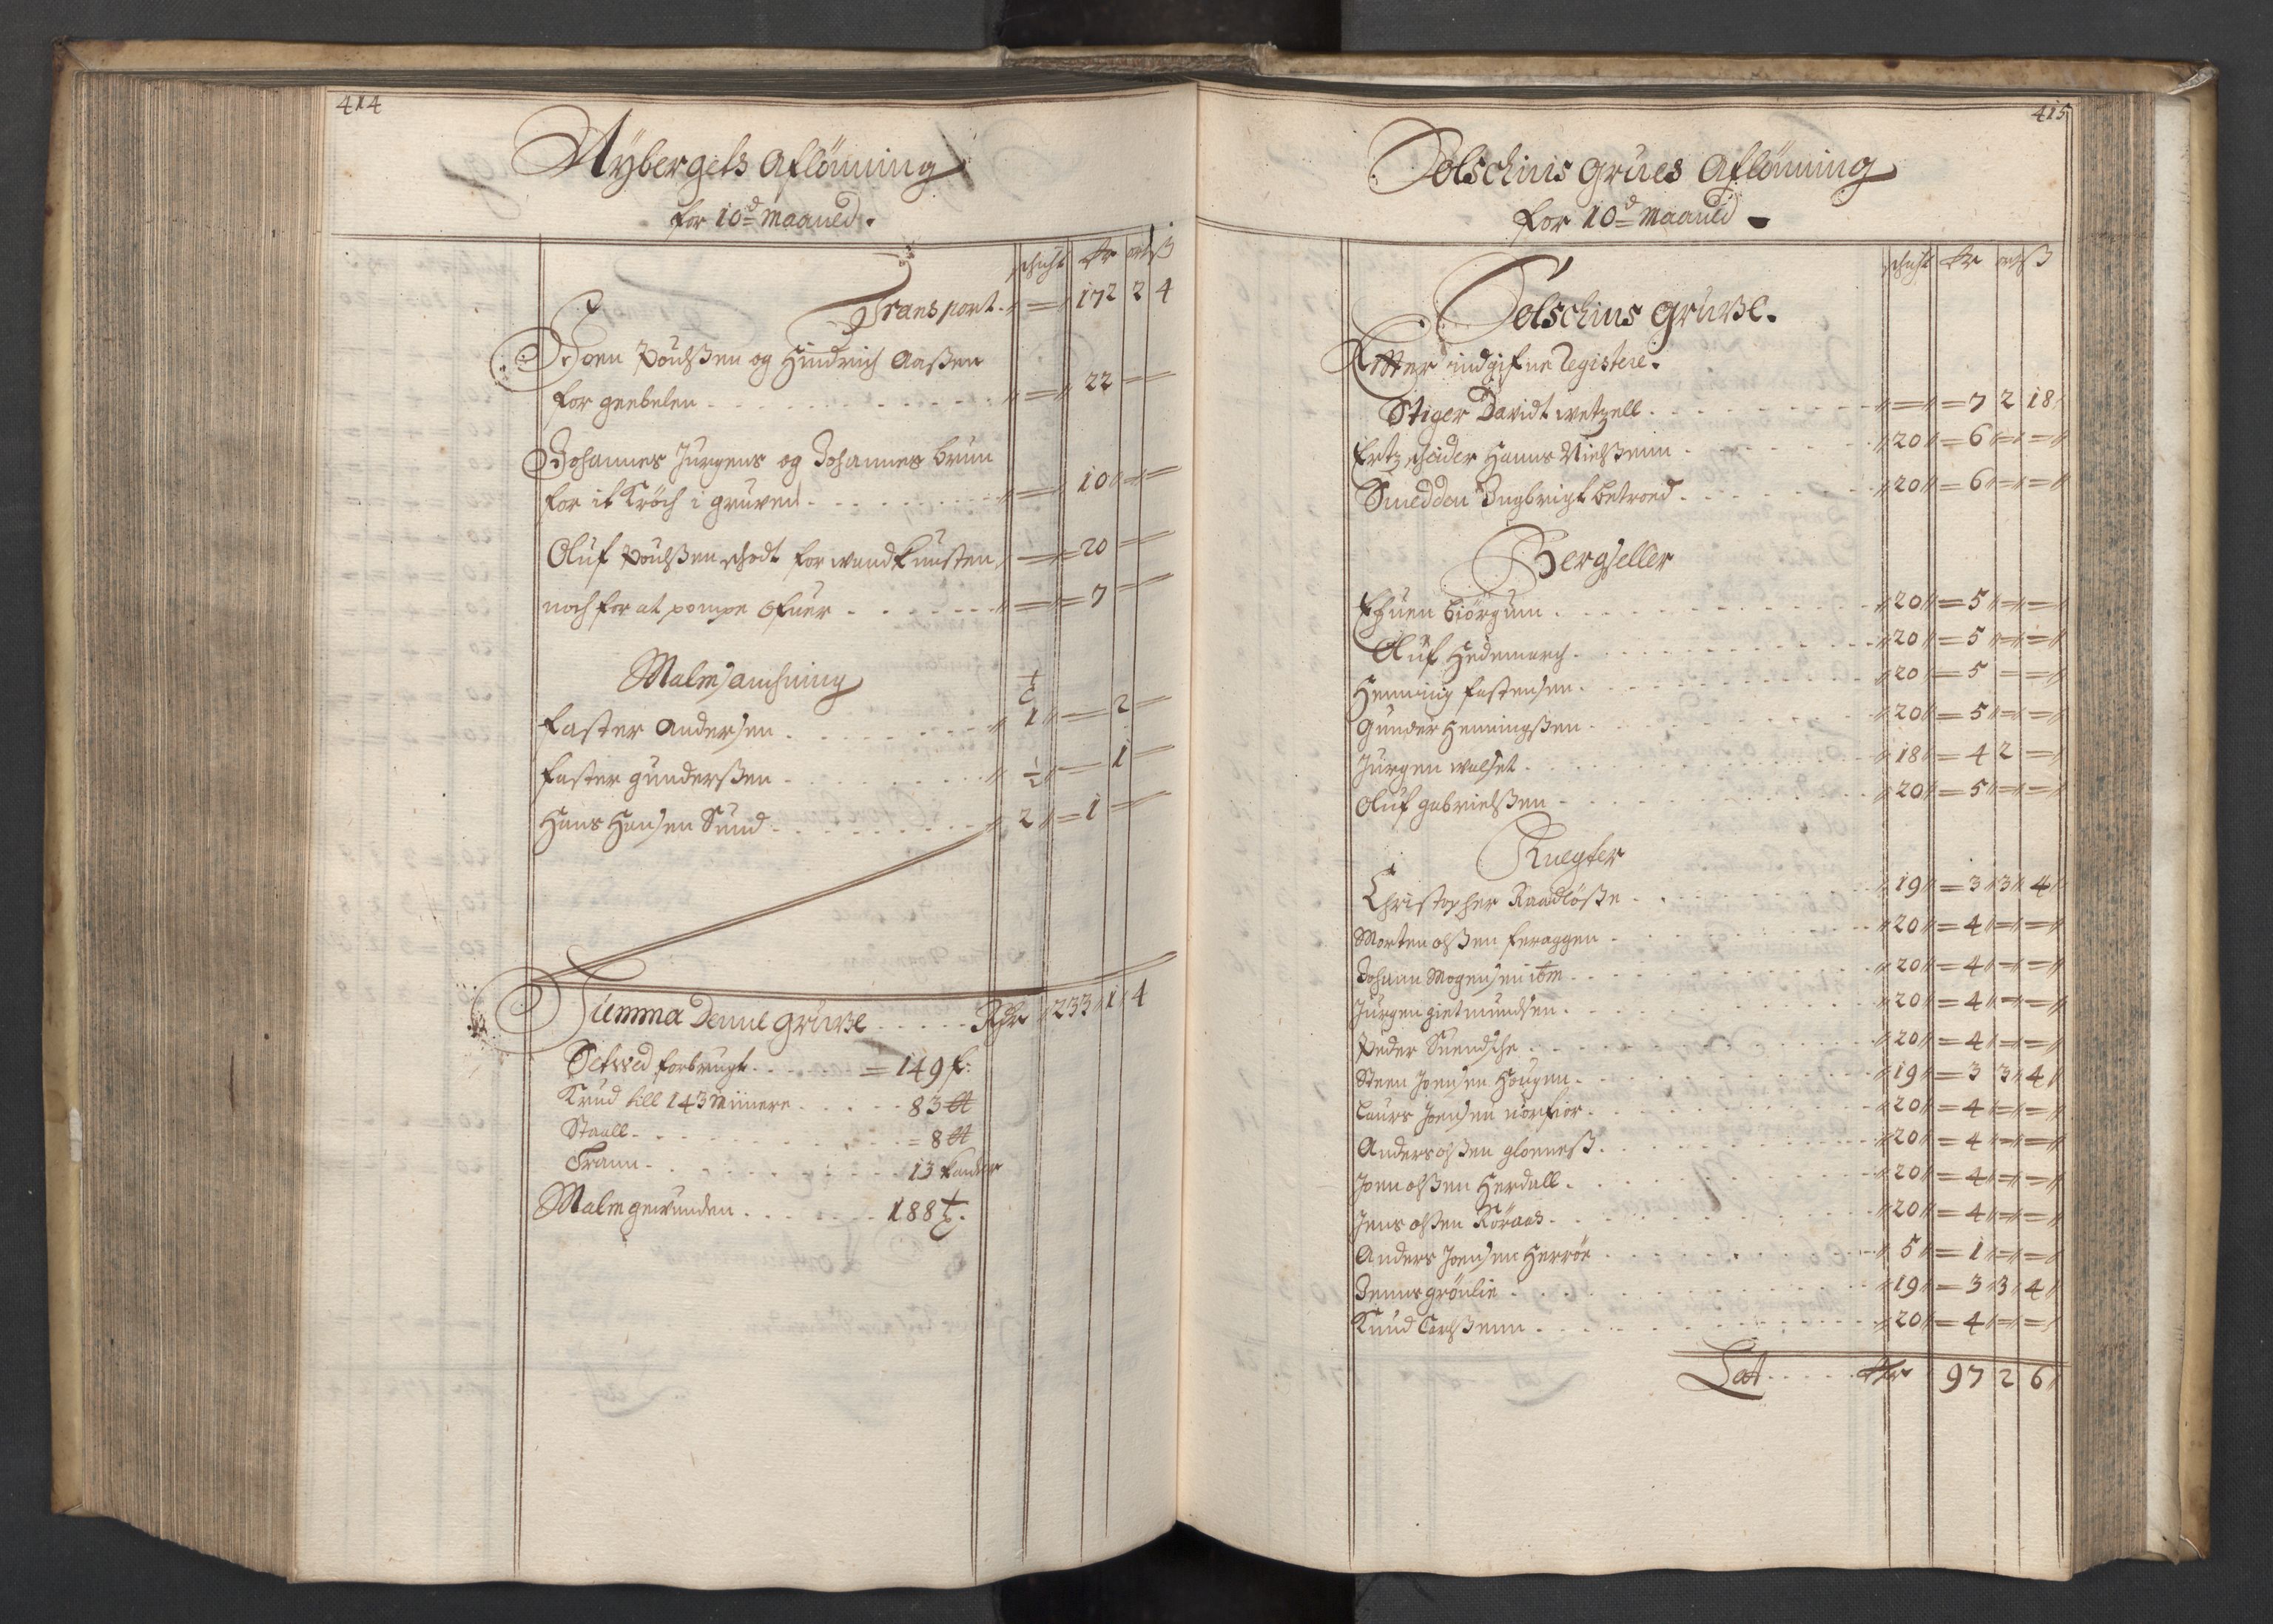 414
Nÿbergets Aflönning
for 10d Maaned.
schicht Rdr ort ß
Transport. = 172 2 4
Joen Poulßen og Hindrich Aaßen
for geebelen = 22 =
Johannes Jurgens og Johannes Brun
for it Kröch i gruven = 10 = =
Oluf Poulßen schodt for wandkunsten = 20 =
noch for at pompe ofuer = 7 =
Malmsamhning
faster Andersen 1 = 2 =
faster gunderßen ½ = 1 =
Hans Hansen Sund 2 = 1 =
Summa Denne gruве Rdr 233 1 4
Setwed forbrugt = 149 f:
Krud till 143 Miinere 83 ℔
Staall = 8 ℔
Trann 13 kander
Malm gewunden 188 t.
415
Solschins grues Aflönning
for 10d Maaned
schicht Rdr ort ß
Solschins gruве.
Efter indgifne Registere.
Stiger Davidt wetzell = = 7 2 18
Ertzscheider Hanns Nielßenn 20 = 6 = =
Smedden Ingbrigt Betroed 20 = 6 = =
Bergseller
Efuen Biörgum 20 = 5 = =
Oluf Hedemarch 20 = 5 = =
Henning fastensen 20 = 5 = =
Gunder Henningßen 20 = 5 = =
Jurgen walset 18 = 4 2 =
Oluf gabrielßen 20 = 5 = =
Knegter
Christopher Raadlößе 19 = 3 3 4
Morten olßen feraggen 20 = 4 = =
Johann Mogensen ibm 20 = 4 = =
Jurgen gietmundsen 20 = 4 = =
Peder Suendsche 20 = 4 = =
Steen Joensen Hougen 19 = 3 3 4
Laurs Joensen norfior 20 = 4 = =
Anders olßen gloeneß 20 = 4 = =
Joen olßen Herdall 20 = 4 = =
Jens olßen Röraas 20 = 4 = =
Anders Joensen Herröe 5 = 1 = =
Jenns grönlie 19 = 3 3 4
Knud Carlßenn 20 = 4 = =
Latt Rdr 97 2 6